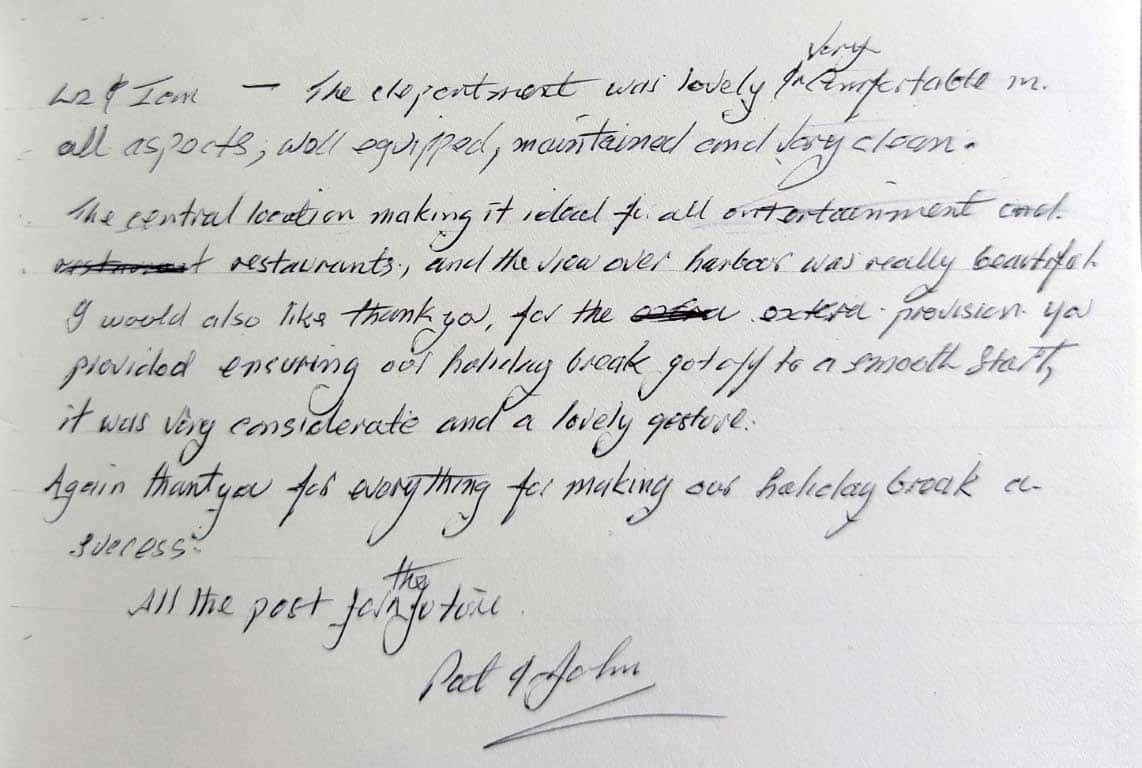 Liz & Ian — The depertment was lovely & very comfortable in
all aspects, well equipped, maintained and very clean.
The central location making it ideal for all entertainment and
restaurants, and the view over harbour was really beautiful
I would also like thank you, for the extera provision you
provided ensuring our holiday break got off to a smooth start,
it was very considerate and a lovely gesture.
Again thank you for everything for making our holiday break a
success.
All the best for the future.
Pat & John